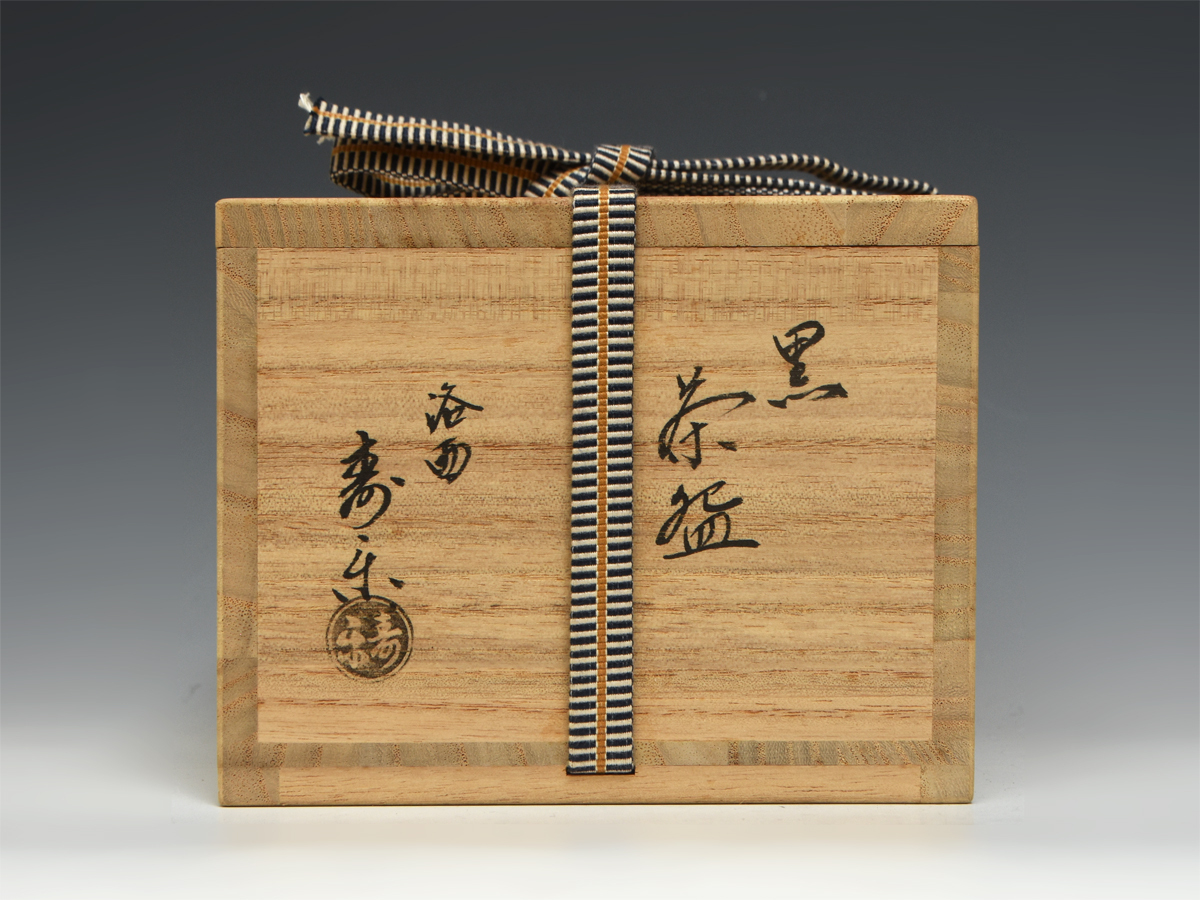 黒
茶盌
洛西
寿楽
寿楽